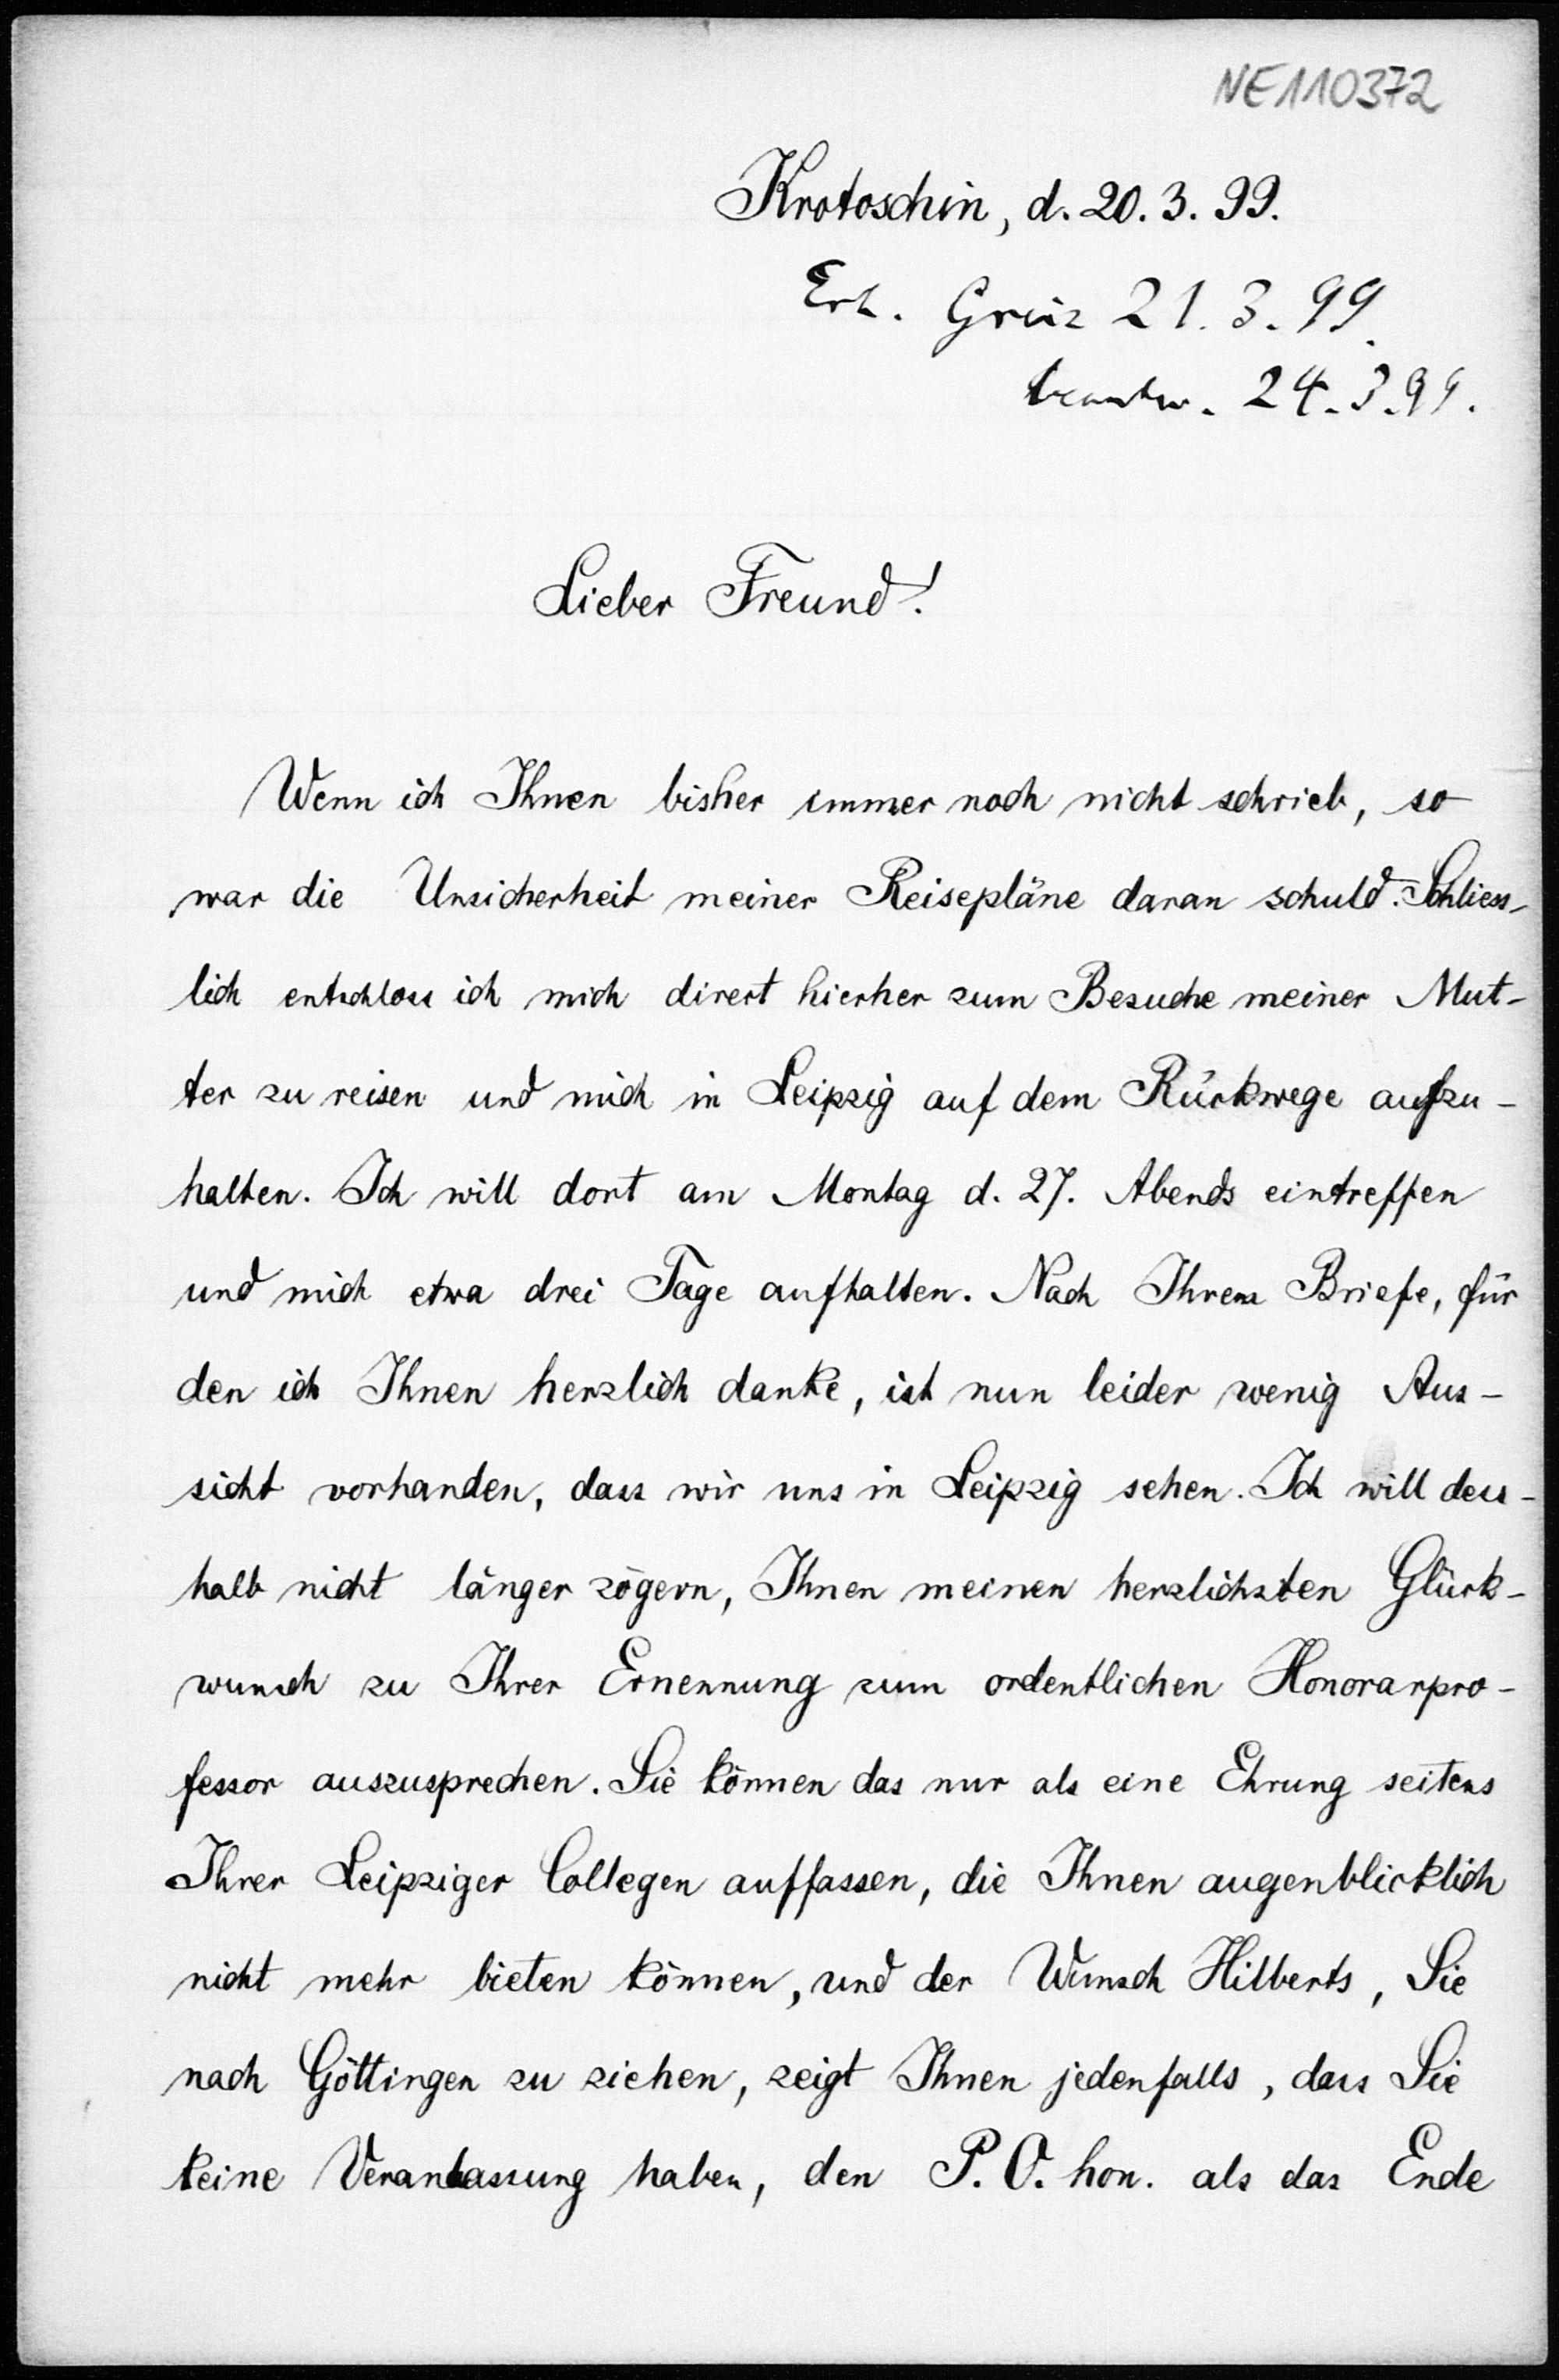 NE110372
Krotoschin, d. 20. 3. 99.
Erh. Greiz 21. 3. 99.
beantw. 24. 3. 99.
Lieber Freund!
Wenn ich Ihnen bisher immer noch nicht schrieb, so
war die Unsicherheit meiner Reisepläne daran schuld. Schliess-
lich entschloss ich mich direct hierher zum Besuche meiner Mut-
ter zu reisen und mich in Leipzig auf dem Rückwege aufzu-
halten. Ich will dort am Montag d. 27. Abends eintreffen
und mich etwa drei Tage aufhalten. Nach Ihrem Briefe, für
den ich Ihnen herzlich danke, ist nun leider wenig Aus-
sicht vorhanden, dass wir uns in Leipzig sehen. Ich will dess-
halb nicht länger zögern, Ihnen meinen herzlichsten Glück-
wunsch zu Ihrer Ernennung zum ordentlichen Honorarpro-
fessor auszusprechen. Sie können das nur als eine Ehrung seitens
Ihrer Leipziger Collegen auffassen, die Ihnen augenblicklich
nicht mehr bieten können, und der Wunsch Hilberts, Sie
nach Göttingen zu ziehen, zeigt Ihnen jedenfalls, dass Sie
keine Veranlassung haben, den P. O. hon. als das Ende